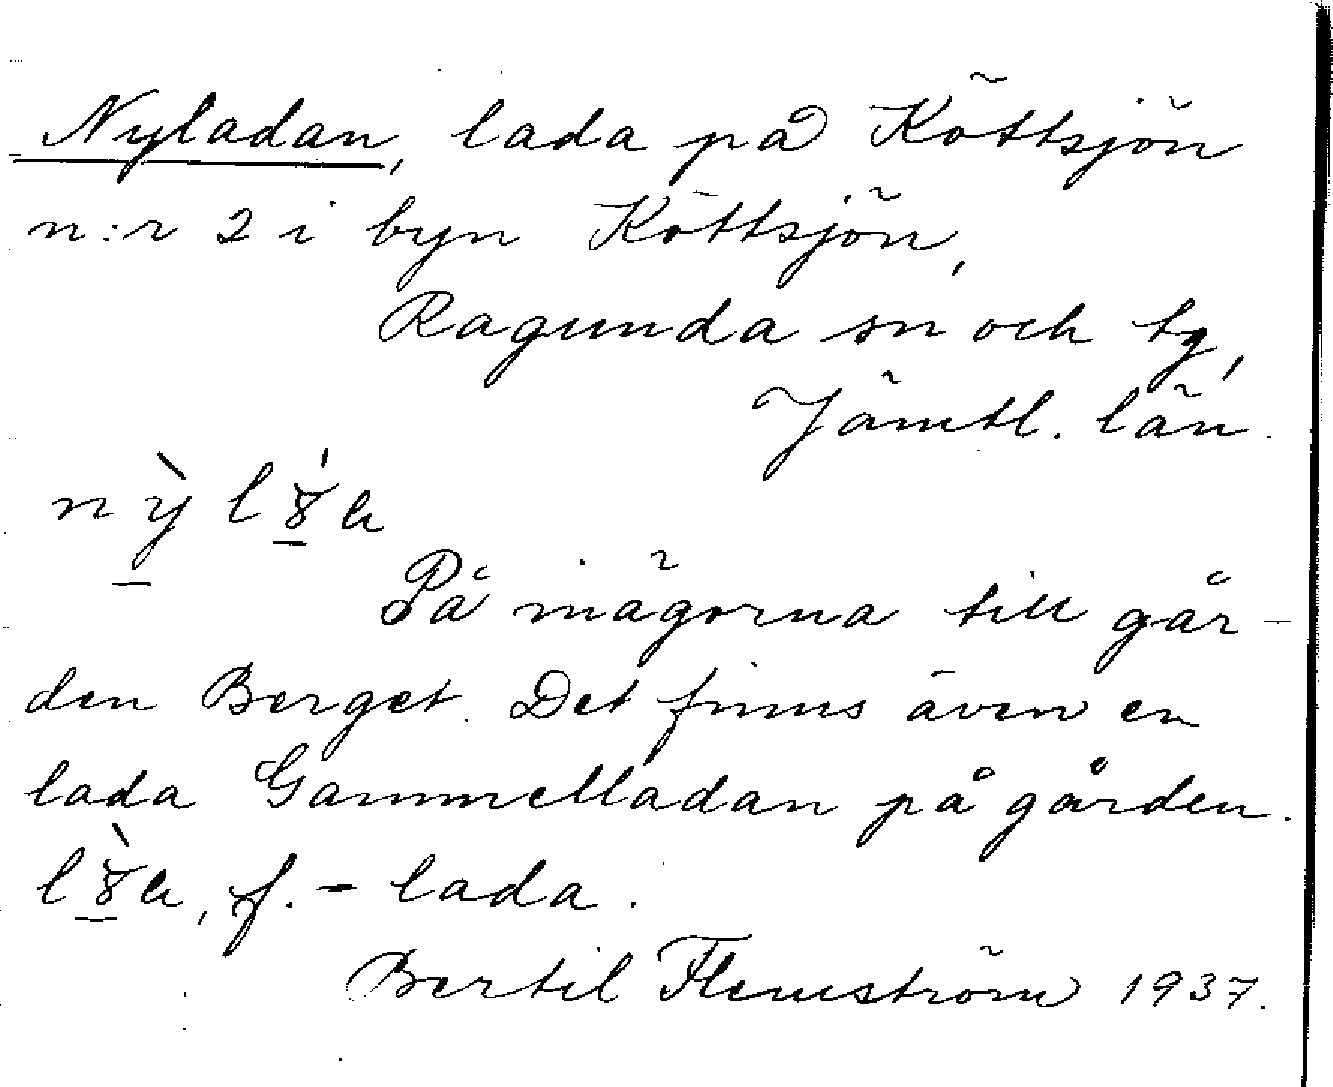 Nyladan, lada på Köttsjön
n:r 2 i byn Köttsjön,
Ragunda sn och tg,
Jämtl. län.
På inägorna till går-
den Berget. Det finns även en
lada Gammelladan på gården.
f. - lada.
Bertil Flemström 1937.